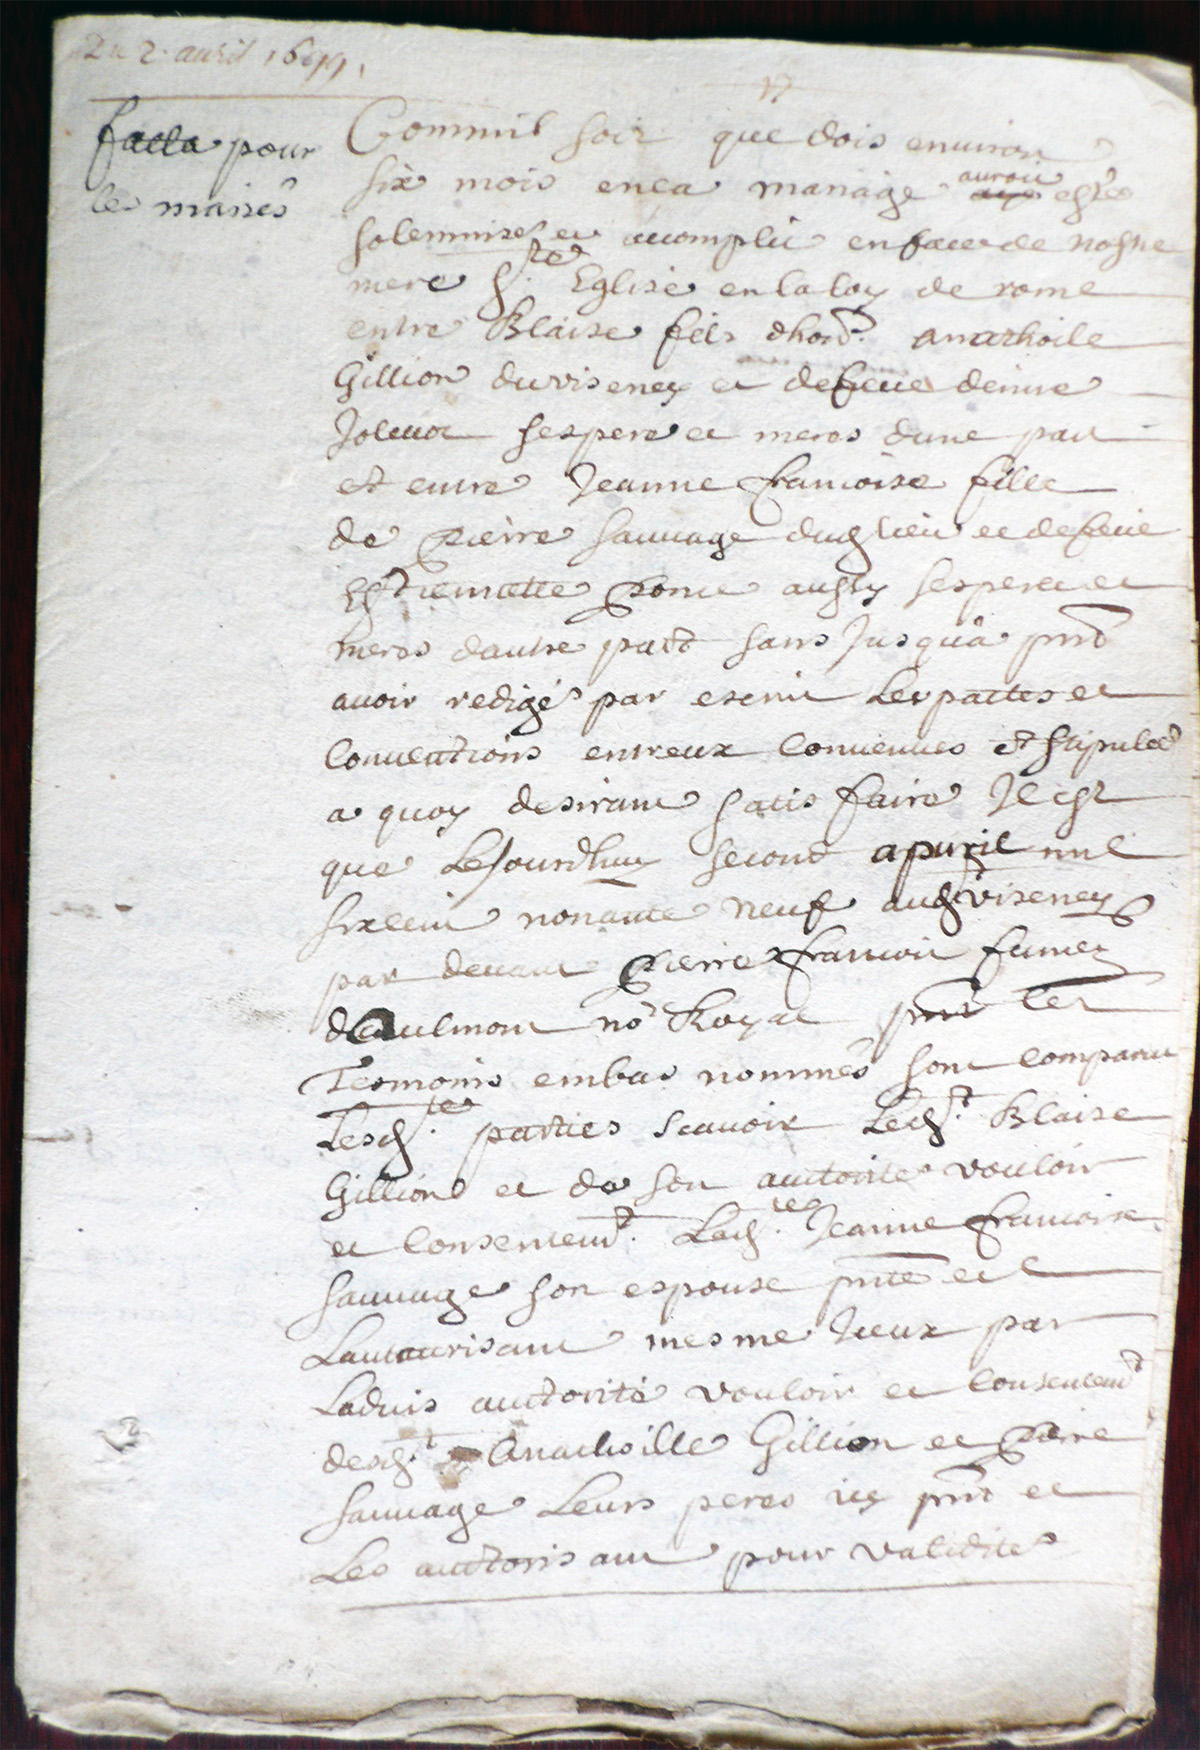 Du 2. auril 1699.
facta pour
les mariés
Commil soir que dois enuiron
six mois enca mariage auroit esté
solemnise et accomplit en face de nostre
mere ste. Eglise en la loy de rome
entre Blaise fils dhon. Anathoile
Gillion du viseney et defeue denise
ses pere et meres dune part
et entre Jeanne francoise fille
de pierre sauuage dud lieu et de feue
Estiennette aussy ses pere et
meres dautre part sans Jusqua pnt
auoir redigé par escrit les pactes et
conuentions entreux conuenues et stipulees
a quoy desirant satis faire Il est
que Lejourdhuy second apuril mil
sixcent nonante neuf aud viseney
par deuant pierre francois fumey
daulmont no.re Royal pnt les
Tesmoins embas nommés sont comparu
Lesd.tes parties scauoir Led.t Blaise
Gillion et de son authorite vouloir
et consentem.t Lad.tes Jeanne francoise
sauuage son espouse pnte et
Lautaurisant mesme Iceux par
Laduis authorité vouloir et consentem.t
desd.t Anathoille Gillion et pierre
sauuage Leurs peres icy pnt et
Les authorisant pour validite